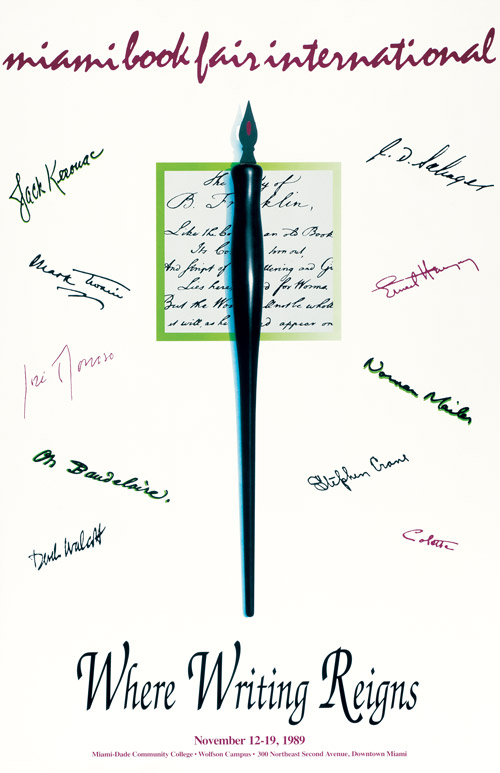 miami book fair international
Jack Kerouac
J. D. Salinger
The y of
B. Fr klin,
Like the Co an Book
Its Co torn out,
And stript of ttering and Gi
Lies here d for Worms
But the Wo ll not be whol
it will, as he d appear on
Mark Twain
Ernest Hemingway
José Donoso
Norman Mailer
Ch Baudelaire.
Stephen Crane
Derek Walcott
Colette
Where Writing Reigns
November 12-19, 1989
Miami-Dade Community College • Wolfson Campus • 300 Northeast Second Avenue, Downtown Miami